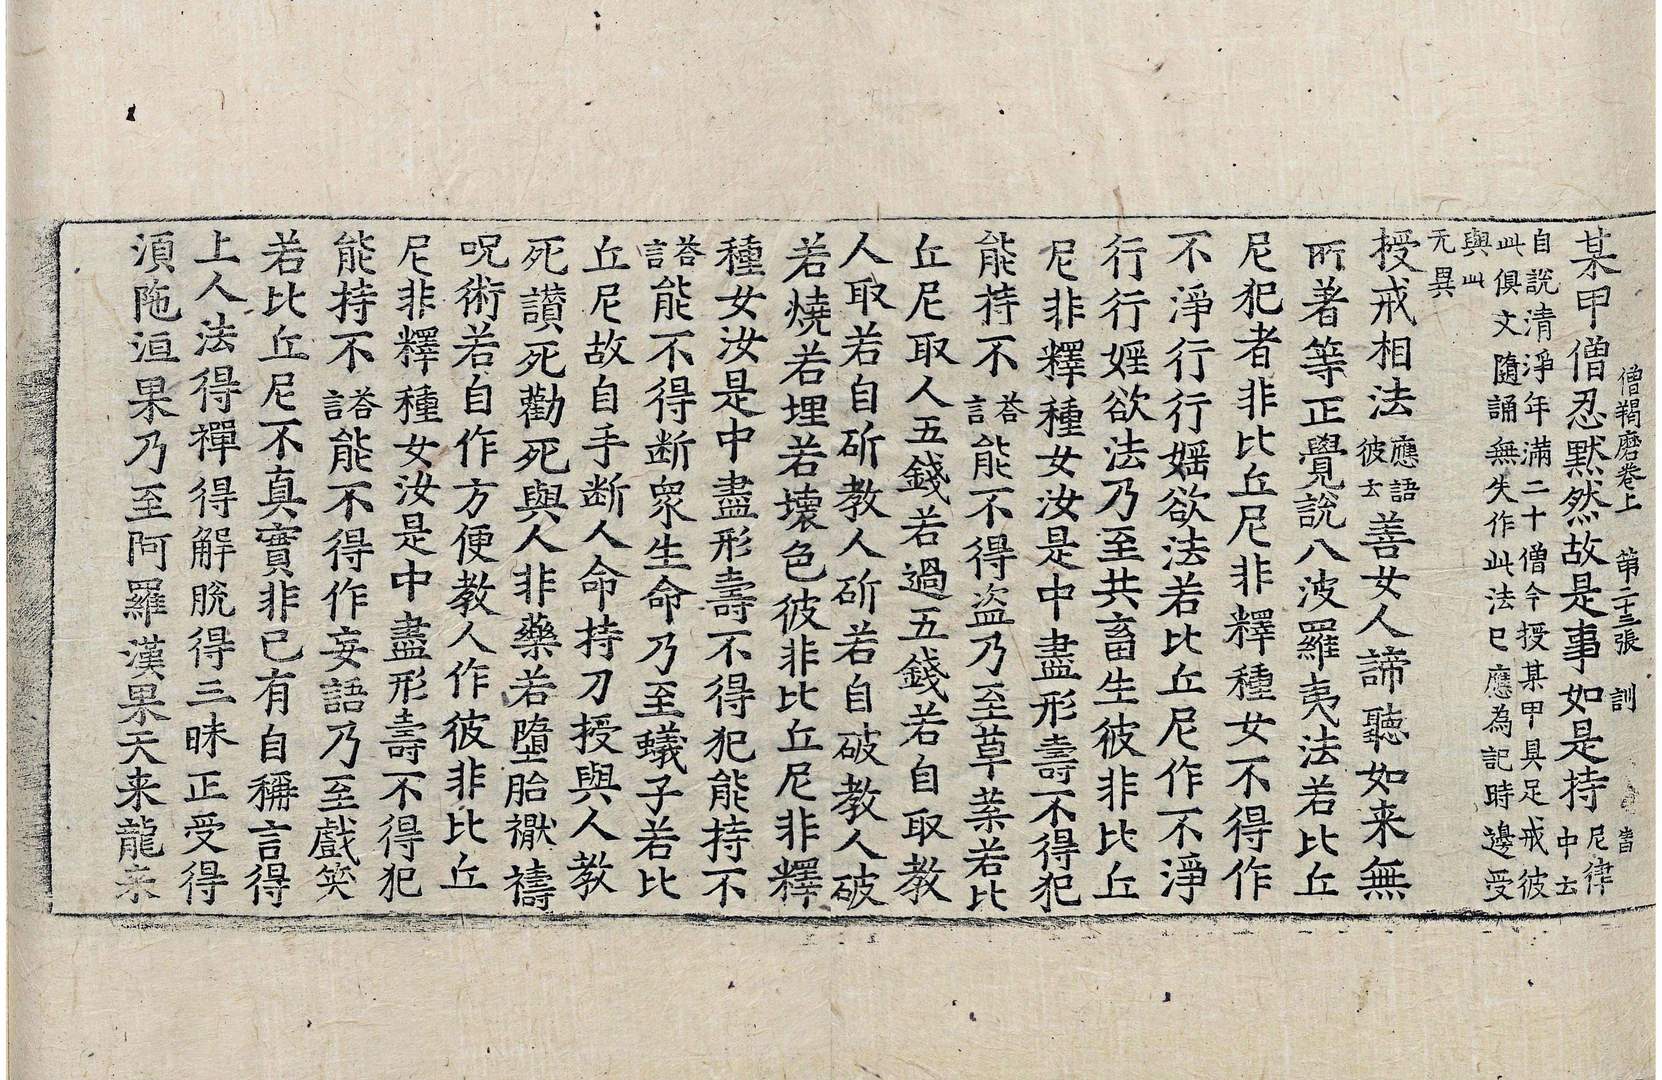 僧羯磨卷上　第二十三張　訓
某甲僧忍默然故是事如是持尼律中云
自說清淨年滿二十僧今授某甲具足戒彼
此俱文隨誦無失作此法已應為記時邊受
與此
无異
授戒相法應語彼云善女人諦聽如来無
所著等正覺說八波羅夷法若比丘
尼犯者非比丘尼非釋種女不得作
不淨行行婬欲法若比丘尼作不淨
行行婬欲法乃至共畜生彼非比丘
尼非釋種女汝是中盡形壽不得犯
能持不答言能不得盜乃至草葉若比
丘尼取人五錢若過五錢若自取教
人取若自斫教人斫若自破教人破
若燒若埋若壞色彼非比丘尼非釋
種女汝是中盡形壽不得犯能持不
答言能不得断衆生命乃至蟻子若比
丘尼故自手断人命持刀授與人教
死讃死勸死與人非藥若墮胎禳禱
呪術若自作方便教人作彼非比丘
尼非釋種女汝是中盡形壽不得犯
能持不答言能不得作妄語乃至戲笑
若比丘尼不真實非已有自稱言得
上人法得禪得解脫得三昧正受得
湏陁洹果乃至阿羅漢果天来龍来